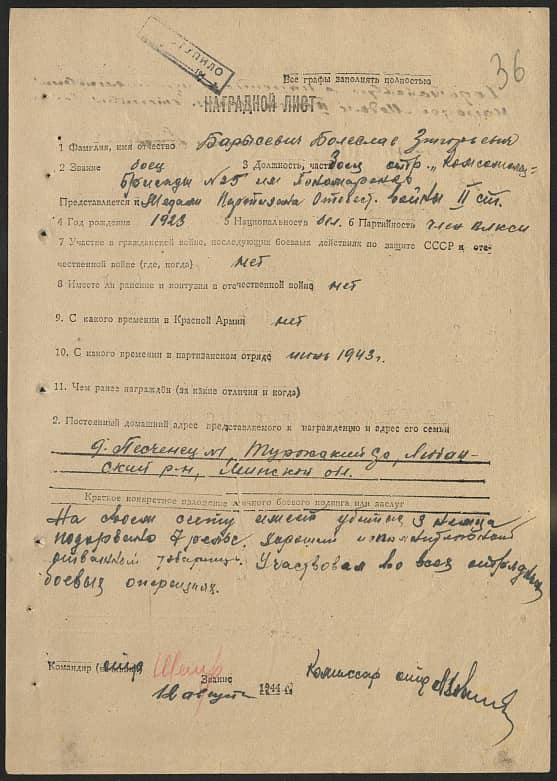 36
Все графы заполнять полностью
НАГРАДНОЙ ЛИСТ
1 Фамилия, имя отчество Барысевич Болеслав
2 Звание боец 3 Должность, часть боец отр. „Комсомолец"
Бригады №25 им Пономаренко
Представляется к Медали Партизана Отечест. войны II ст.
4 Год рождения 1923 5 Национальность бел. 6 Партийность член влксм
7 Участие в гражданской войне, последующих боевых действиях по защите СССР и оте-
чественной войне (где, когда) нет
8 Имеете ли ранение и контузии в отечественной войне нет
9. С какого времени в Красной Армии нет
10. С какого времени в партизанском отряде июнь 1943 г.
11. Чем ранее награждён (за какие отличия и когда)
2. Постоянный домашний адрес представляемого к награждению и адрес его семьи
Любан-
ский р-н, Минской
Краткое конкретное изложение личного боевого подвига или заслуг
На своем счету имеет убитых 3 немца
подорвано рельс. хороший
товарищ. Участвовал во всех отрядных
боевых операциях.
Командир отр Комиссар отр
Звание
августа 1944